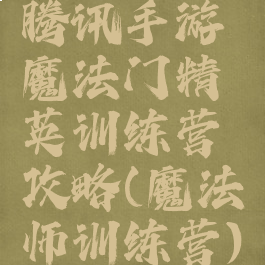 腾讯手游
魔法门精
英训练营
攻略(魔法
师训练营)